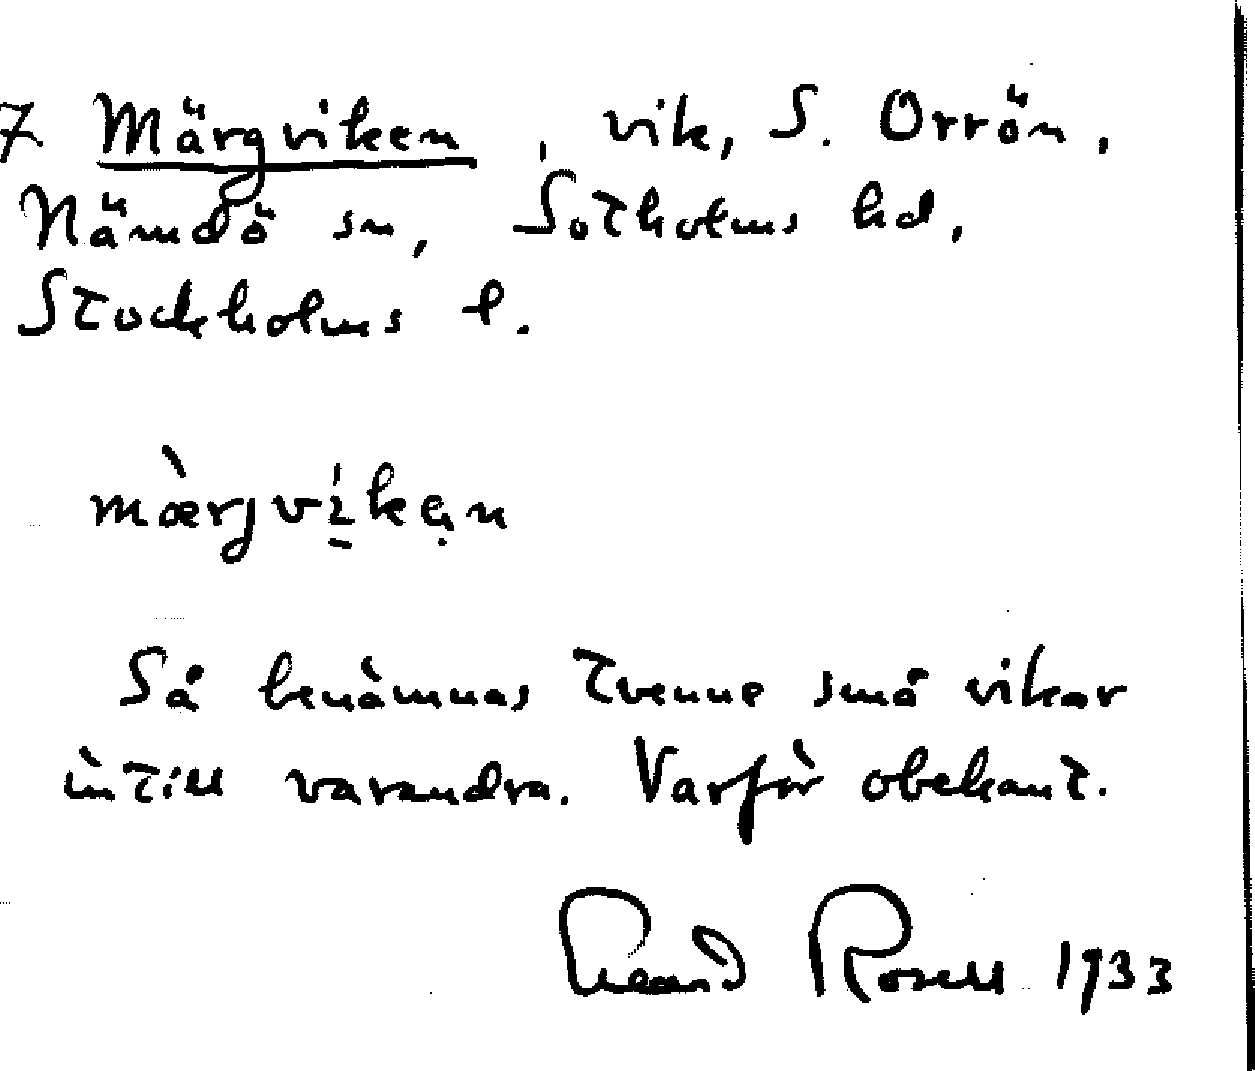 7 Märgviken, vik, S. Orrön,
Nämdö sn, Sotholms hd,
Stockholms l.
mærjvikən
Så benämnas tvenne små vikar
intill varandra. Varför obekant.
Rosell 1933